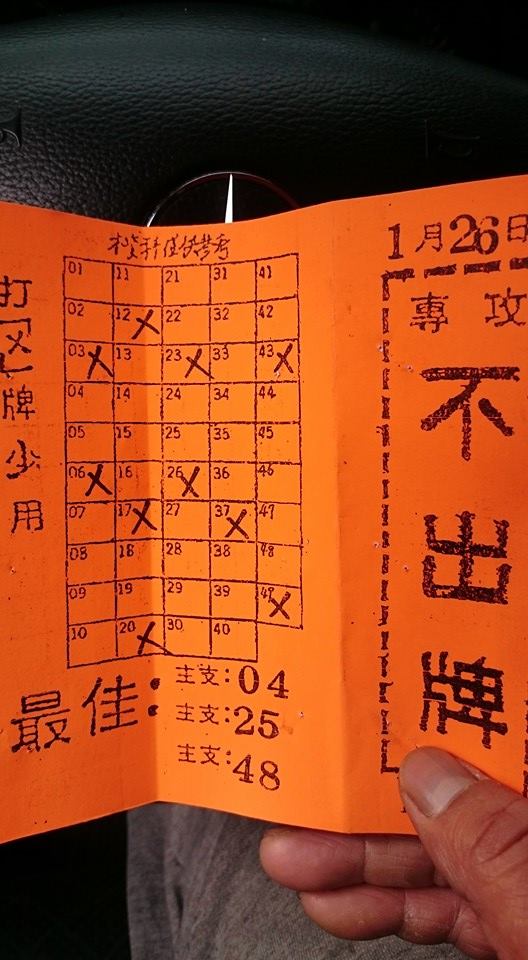 1月26日
專攻
不出牌
打「X」牌少用
01 11 21 31 41
02 12 22 32 42
03 13 23 33 43
04 14 24 34 44
05 15 25 35 45
06 16 26 36 46
07 17 27 37 47
08 18 28 38 48
09 19 29 39 49
10 20 30 40
最佳:
主支:04
主支:25
主支:48